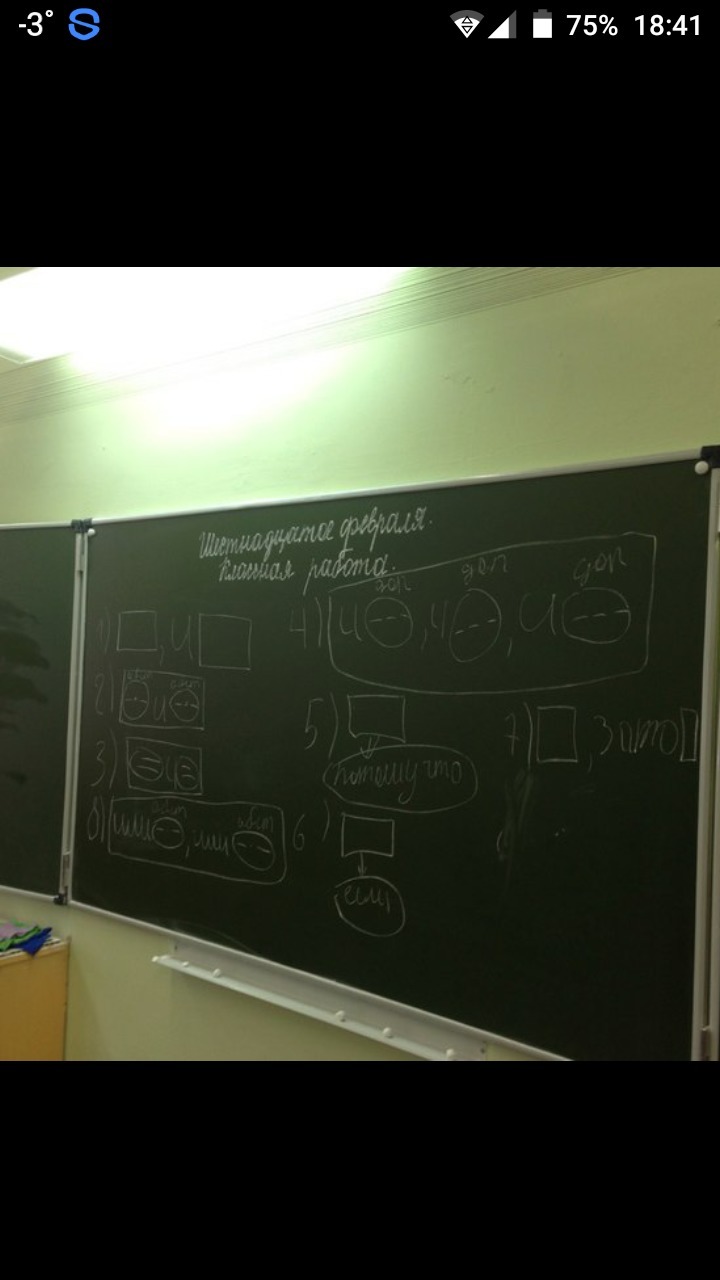 -3° 75% 18:41
Шестнадцатое февраля.
Классная работа.
1) , и
2) обст и обст
3) и
8) или обст, или обст
4) и доп, и доп, и доп
5) потому что
6) если
7) , зато